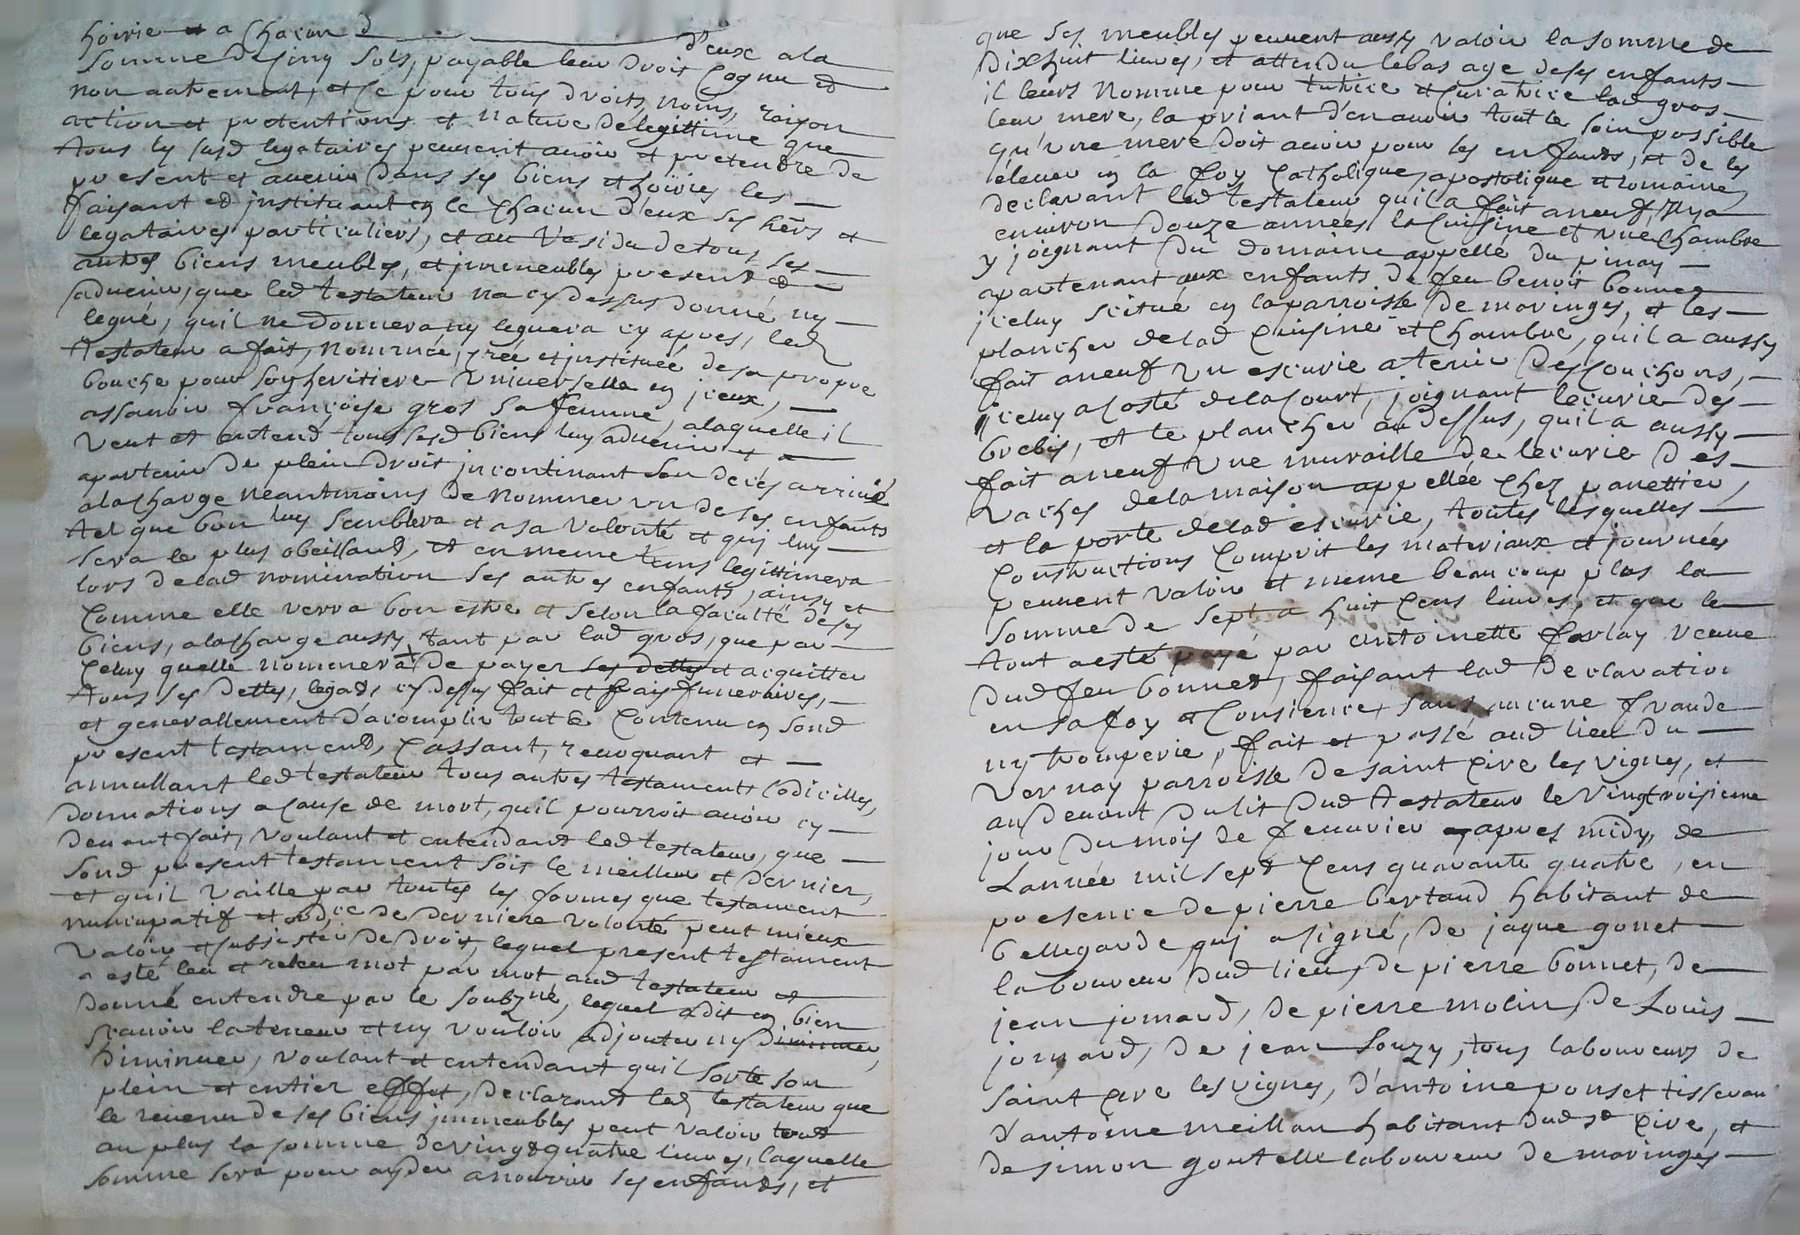 hoirie et a chacun d'eux a la
Somme de cinq sols, payable leur droit cognu et
non autrement, et ce pour tous droits, noms, raison
action et pretentions et nature de legittime que
tous les susd legataires peuvent avoir et pretendre de
present et avenir dans ses biens et hoiries les
faisant et instituant en ce chacun d'eux ses hers et
legataires particuliers, et au residu de tous ses
autres biens meubles, et immeubles presents et
advenir, que led testateur na cy dessus donné ny
legué, quil ne donnera ny leguera cy apres, led
testateur a fait, nommée, créé et instituée de sa propre
bouche pour son heritiere universelle en iceux,
assavoir françoise gros sa femme, a laquelle il
veut et entend tous sesd biens luy advenir et
apartenir de plein droit incontinant son deces arrivé
a la charge neantmoins de nommer un de ses enfants
tel que bon luy semblera et a sa volonté et qui luy
sera le plus obeissant, et en meme tems legittimera
lors de lad nomination ses autres enfants, ainsy et
comme elle verra bon estre et selon la faculté de ses
biens, a la charge aussy tant par lad gros, que par
celuy quelle nommera de payer ses dettes et acquitter
tous ses dettes, legats cy dessus fait et frais funeraires,
et generallement d'acomplir tout le contenu en sond
present testament, cassant, revoquant et
annullant led testateur tous autres testaments codicilles,
donnations a cause de mort, quil pourroit avoir cy
devant fait, voulant et entendant led testateur, que
sond present testament soit le meilleur et dernier,
et quil vaille par toutes les formes que testament
nuncupatif et ordce de derniere volonté peut mieux
valoir et subsister de droit, lequel present testament
a esté leu et releu mot par mot aud testateur et
donné entendre par le soubzné, lequel a dit en bien
scavoir la teneur et ny vouloir adjouter ny diminuer,
diminuer, voulant et entendant quil sorte son
plein et entier effet, declarant led testateur que
le revenu de ses biens immeubles peut valoir tout
au plus la somme de vingt quatre livres, laquelle
somme sera pour ayder a nourrir ses enfants, et
que ses meubles peuvent aussy valoir la somme de
dixhuit livres, et attendu le bas age de ses enfants
il leurs nomme pour tutrice et curatrice lad gros
leur mere, la priant d'en avoir tout le soin possible
qu'une mere doit avoir pour les enfants, et de les
elever en la foy catholique, apostolique et romaine,
declarant led testateur quil a fait a neuf, il y a
environ douze années la cuisine et une chambre
y joignant du domaine appellé du pinay
apartenant aux enfants de feu benoit bonnet
iceluy scitué en la parroisse de maringes, et les
plancher de lad cuisine et chambre, quil a aussy
fait a neuf un escurie a tenir des couchons,
iceluy a costé de la court, joignant lecurie des
brebis, et le plancher au dessus, quil a aussy
fait a neuf une muraille de lecurie des
vaches de la maison appellée chez panettier,
et la porte de lad escurie, toutes lesquelles
constructions comprit les materiaux et journées
peuvent valoir et meme beaucoup plus la
somme de sept a huit cens livres, et que le
tout a esté payé par antoinette farlay veuve
dud feu bonnet, faisant lad declaration
en sa foy et consience, sans aucune fraude
ny tromperie, fait et passé aud lieu du
vernay parroisse de saint cire les vignes, et
au devant du lit dud testateur le vingtroisieme
jour du mois de fevrier apres midy, de
Lannée mil sept cens quarante quatre, en
presence de pierre bertaud habitant de
bellegarde qui a signé, de jaque gonet
laboureur dud lieu, de pierre bonnet, de
jean jomard, de pierre molin, de Louis
jomard, de jean Souzy, tous laboureurs de
saint cire les vignes, d'antoine ponset tisseran
d'antoine meillan habitant dud st cire, et
de simon goutelle laboureur de maringes